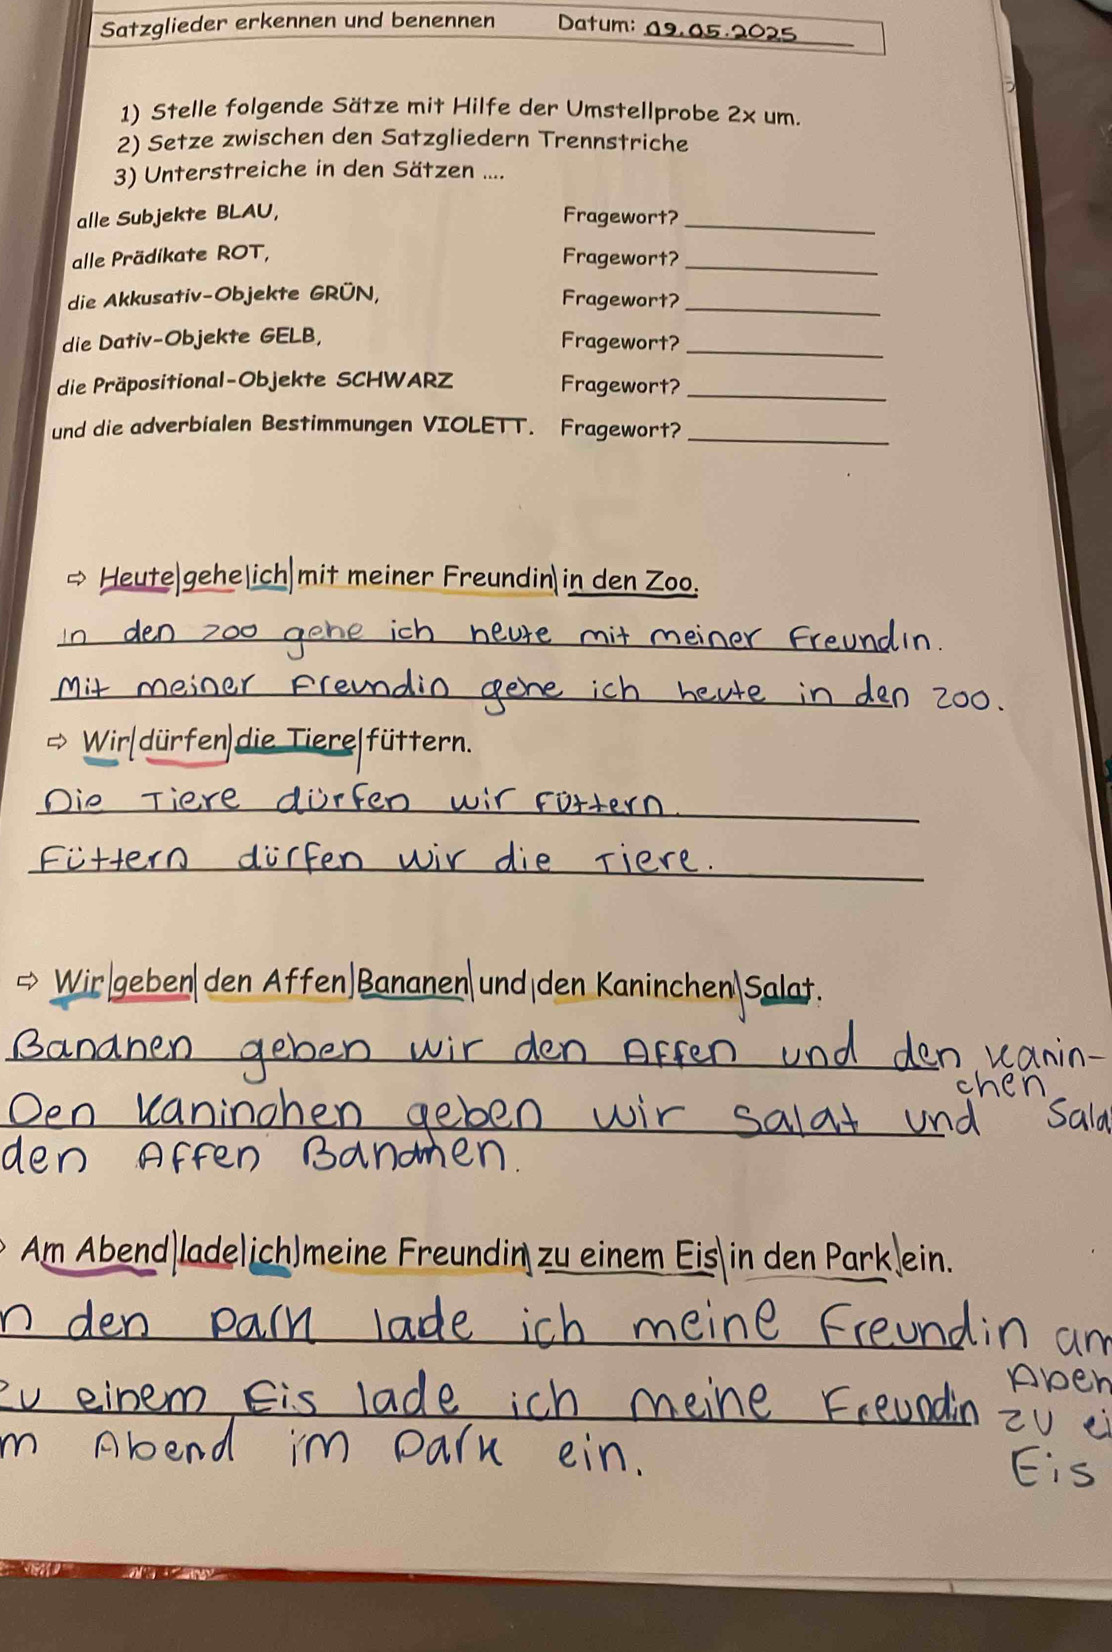 Satzglieder erkennen und benennen Datum: 09.05.2025
1) Stelle folgende Sätze mit Hilfe der Umstellprobe 2x um.
2) Setze zwischen den Satzgliedern Trennstriche
3) Unterstreiche in den Sätzen ....
alle Subjekte BLAU, Fragewort? ____________
alle Prädikate ROT, Fragewort? ____________
die Akkusativ-Objekte GRÜN, Fragewort? ____________
die Dativ-Objekte GELB, Fragewort? ____________
die Präpositional-Objekte SCHWARZ Fragewort? ____________
und die adverbialen Bestimmungen VIOLETT. Fragewort? ____________
⇨ Heute|gehe|ich|mit meiner Freundin|in den Zoo.
in den zoo gehe ich heute mit meiner Freundin.
Mit meiner Freundin gehe ich heute in den zoo.
⇨ Wir|dürfen|die Tiere|füttern.
Die Tiere dürfen wir füttern.
Füttern dürfen wir die Tiere.
⇨ Wir|geben|den Affen|Bananen|und|den Kaninchen|Salat.
Bananen geben wir den Affen und den Kanin-
chen
Den Kaninchen geben wir salat und Sala
den Affen Bananen.
Am Abend|lade|ich|meine Freundin|zu einem Eis|in den Park|ein.
n den park lade ich meine Freundin am
Aben
zu einem Eis lade ich meine Freundin zu ei
m Abend im park ein. Eis